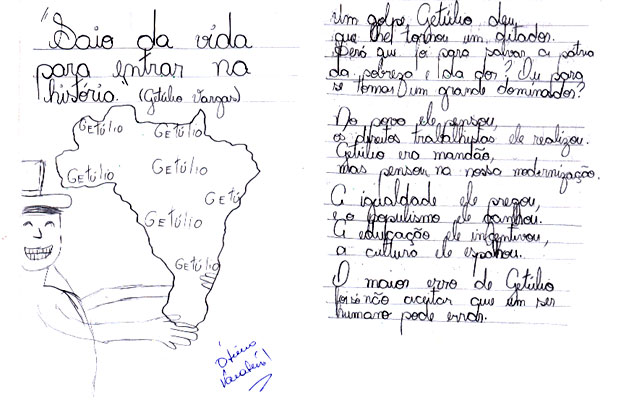 "Saio da vida
para entrar na
história." (Getúlio Vargas)
GETÚLIO
GETÚLIO
GETÚLIO
GETÚLIO
GETÚ
GETÚLIO
GETÚLIO
Ótimo
Parabéns!
Um golpe, Getúlio deu,
que lhe tornou um ditador.
Será que foi para salvar a pátria
da pobreza e da dor? Ou para
se tornar um grande dominador?
No povo ele pensou,
os direitos trabalhistas ele realizou.
Getúlio era mandão,
mas pensou na nossa modernização.
A igualdade ele pregou,
e o populismo ele ganhou.
A educação ele incentivou,
a cultura ele espalhou.
O maior erro de Getúlio
foi não aceitar que um ser
humano pode errar.